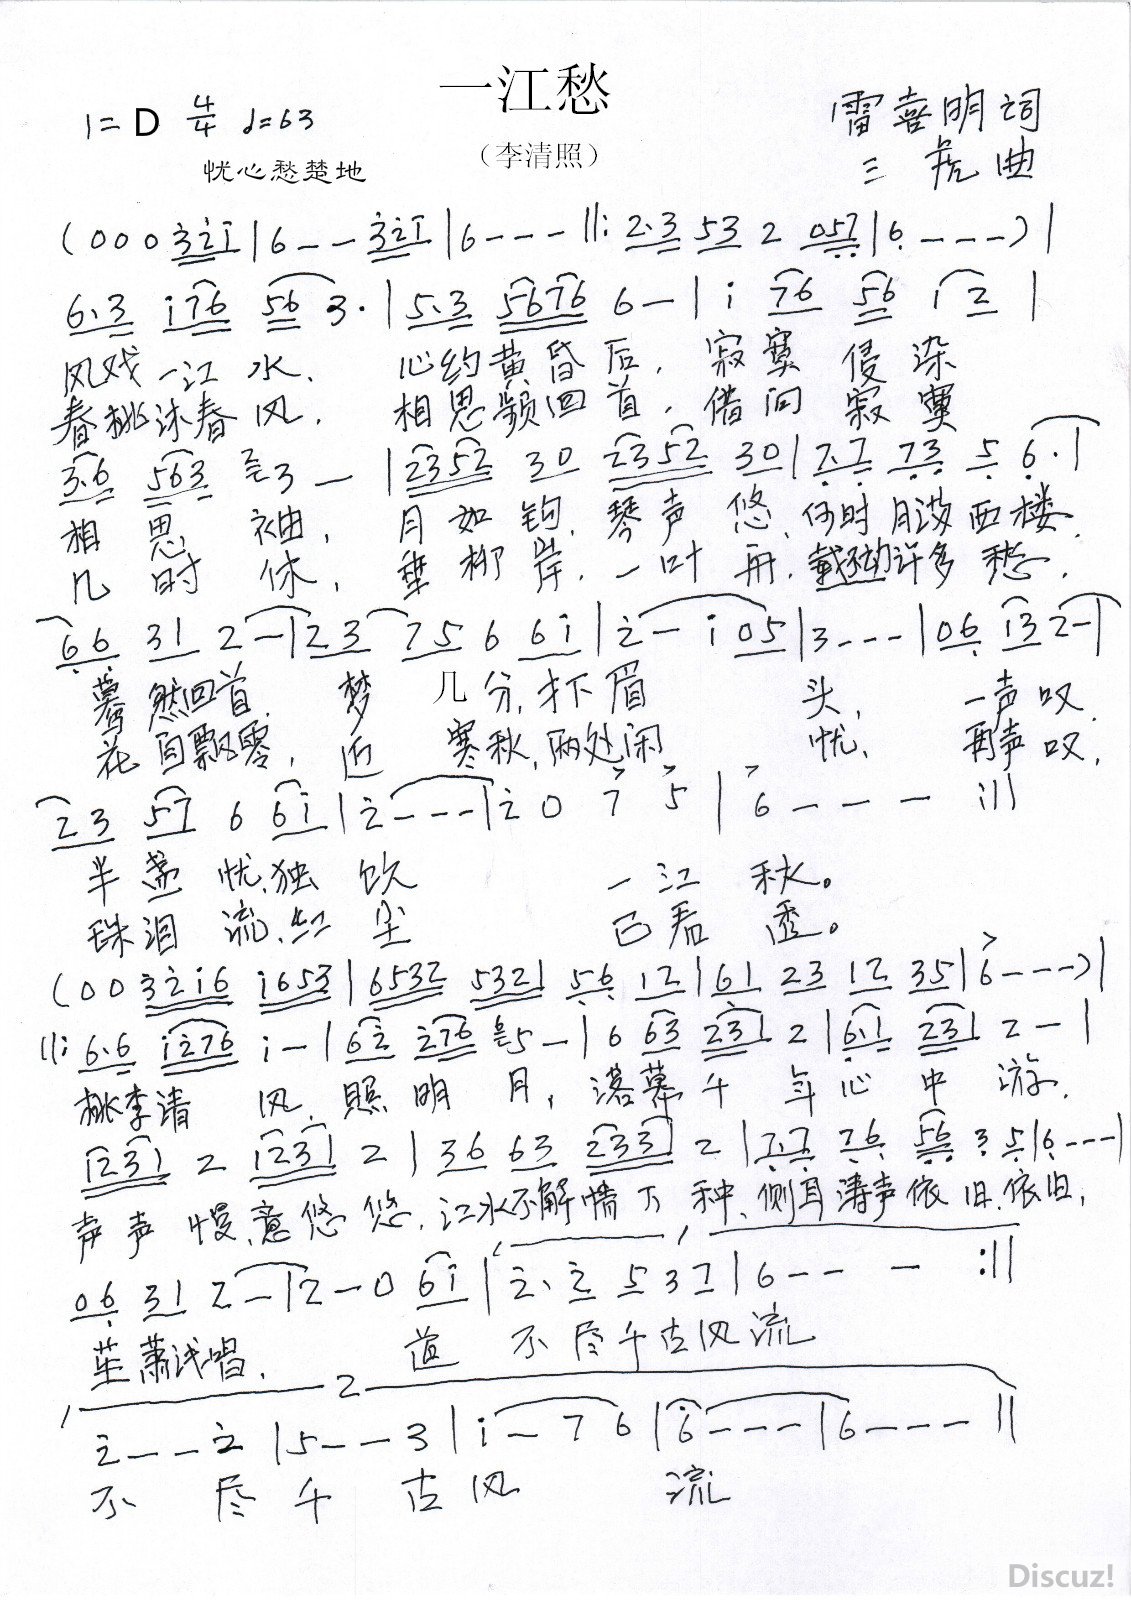 一江愁
1=D 4/4 ♩=63
（李清照）
雷喜明词
忧心愁楚地
三虎曲
(0 0 0 3 2 i | 6 – – 3 2 i | 6 – – – ‖: 2·3 5 3 2 0 5 7 | 6 – – – ) |
6·3 i 7 6 5 6 3· | 5·3 5 6 7 6 6 – | i 7 6 5 6 i 2 |
风戏一江水， 心约黄昏后，寂寞侵染
春桃沐春风， 相思频回首，借问寂寞
3·6 5 6 3 2 3 – | 2 3 5 2 3 0 2 3 5 2 3 0 | 7·7 7 3 5 6· |
相思袖，月如钩，琴声悠，何时月没西楼，
几时休，垂柳岸，一叶舟，载不动许多愁，
6 6 3 1 2 – | 2 3 7 5 6 6 i | 2 – i 0 5 | 3 – – – | 0 6 i 3 2 – |
蓦然回首，梦几分，才下眉头，一声叹，
花自飘零，近寒秋，两处闲忧，再声叹，
2 3 5 7 6 6 i | 2 – – – | 2 0 7 5 | 6 – – – :‖
半盏忧，独饮 一江秋。
珠泪流，红尘 已看透。
(0 0 3 2 i 6 i 6 5 3 | 6 5 3 2 5 3 2 1 5 6 1 2 | 6 1 2 3 1 2 3 5 | 6 – – – ) |
‖: 6·6 i 2 7 6 i – | 6 2 2 7 6 6 5 – | 6 6 3 2 3 1 2 | 6·1 2 3 1 2 – |
桃李清风，照明月，落幕千年心中游。
1 2 3 1 2 1 2 3 1 2 | 3 6 6 3 2 3 3 1 2 | 7·7 7 6 5 6 3 5 | 6 – – – |
声声慢，意悠悠，江水不解情万种，侧耳涛声依旧，依旧，
0 6 3 1 2 – | 2 – 0 6 i | 2· 2 5 3 7 | 6 – – – :‖
笙萧浅唱，道不尽千古风流
2
2 – – 2 | 5 – – 3 | i – 7 6 | 6 – – – | 6 – – – ‖
不尽千古风流
Discuz!